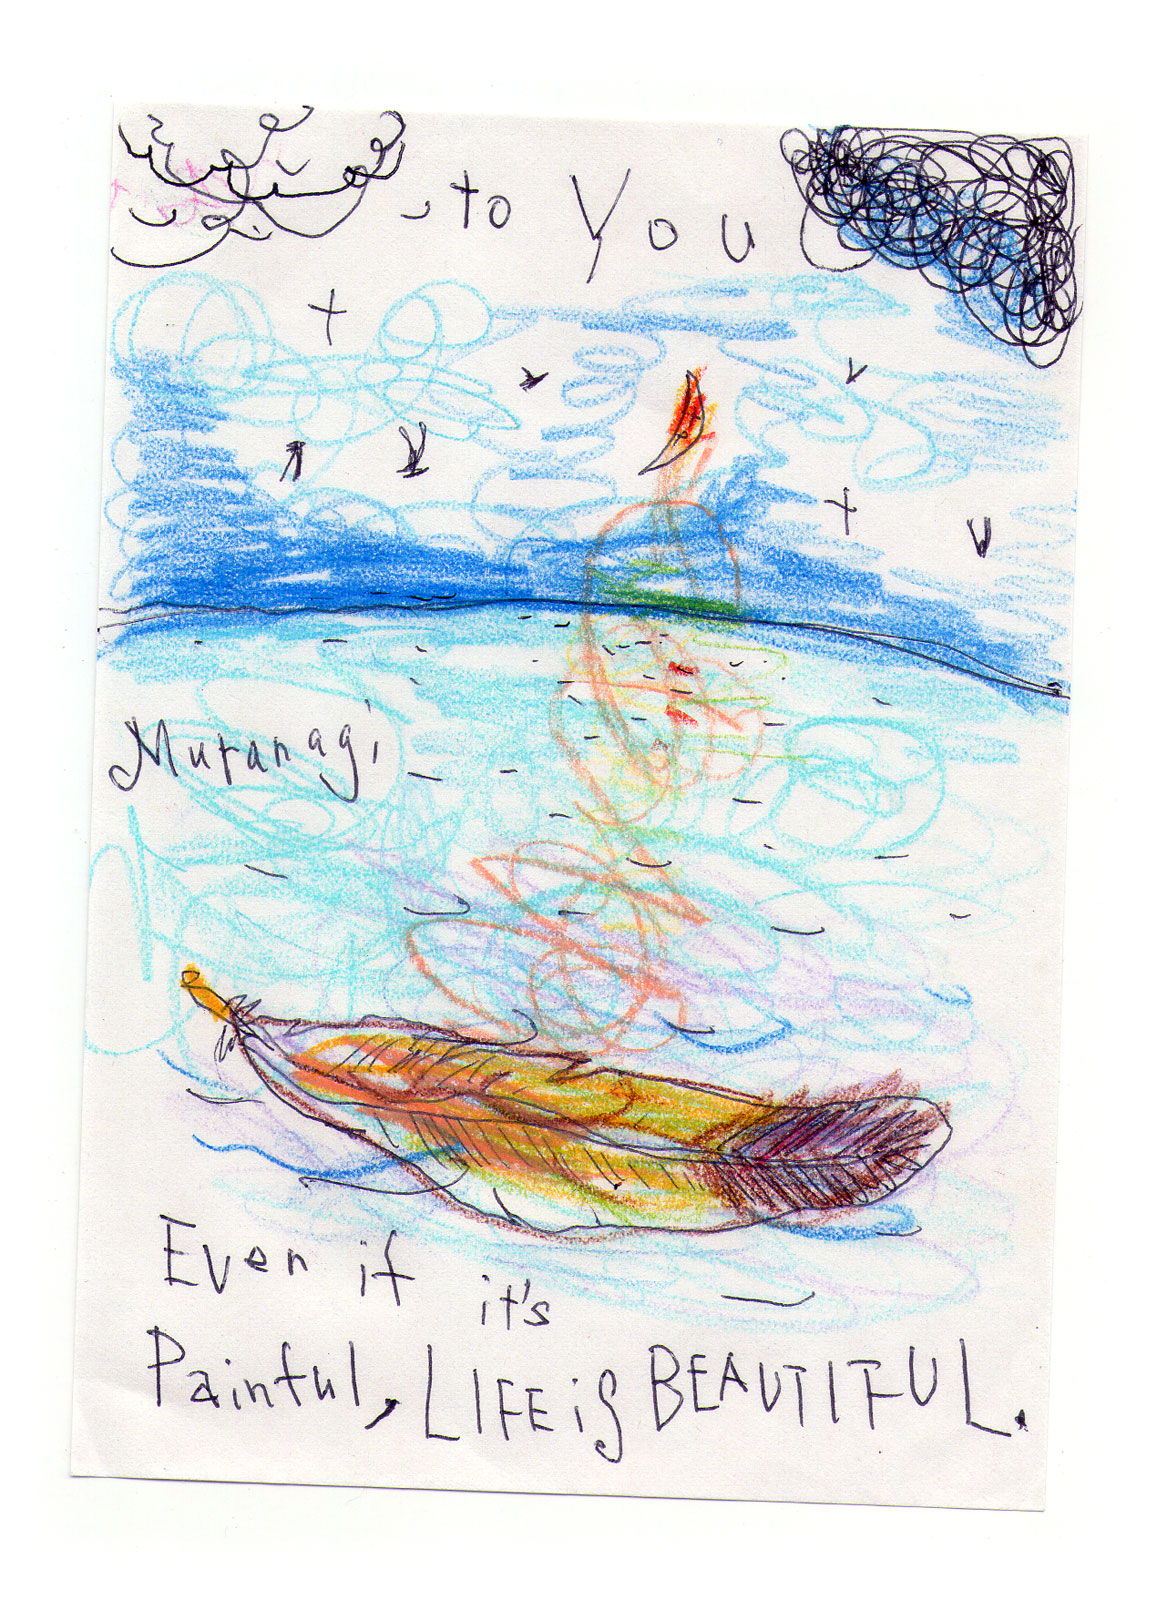 to You
Muranagi
Even if it's
Painful, LIFE is BEAUTIFUL.